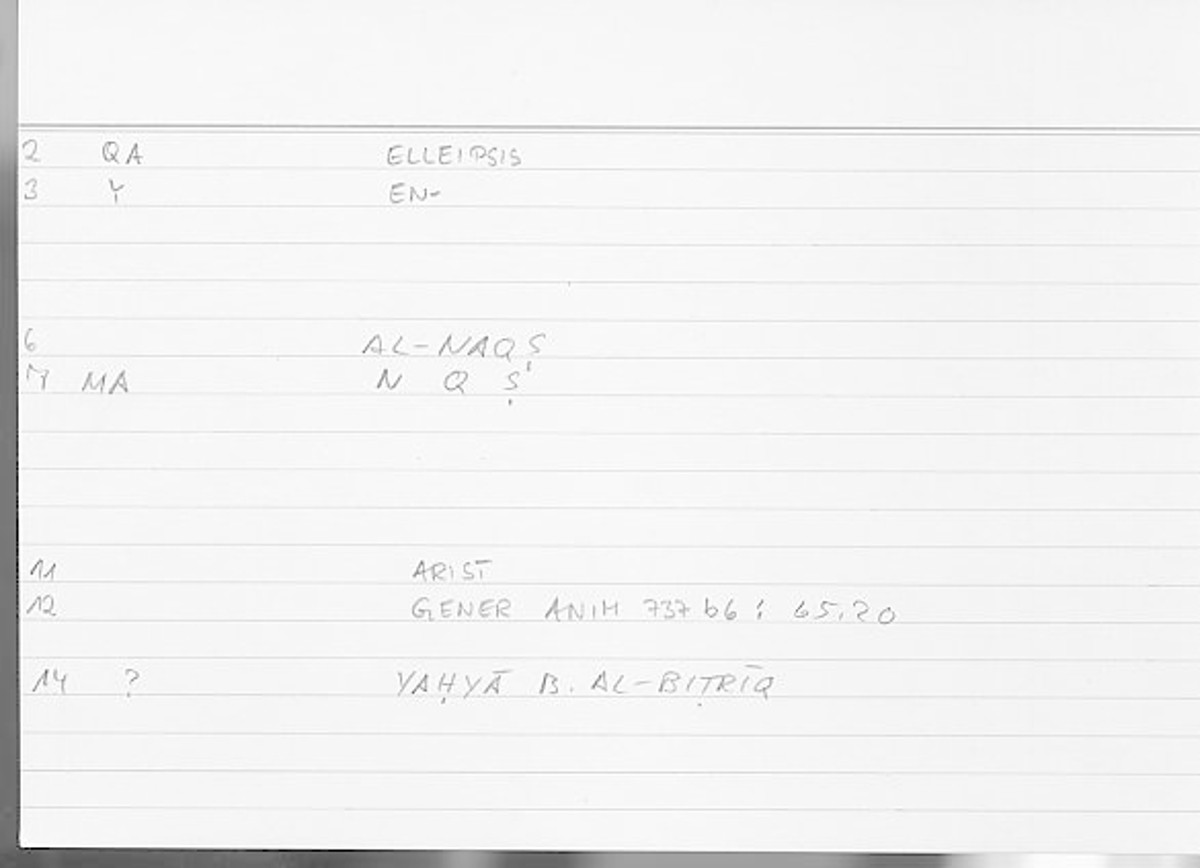 2 QA ELLEIPSIS
3 Y EN-
6 AL-NAQṢ
7 MA N Q Ṣ
11 ARIST
12 GENER ANIM 737 b6 : 65.20
14 ? YAḤYĀ B. AL-BIṬRĪQ